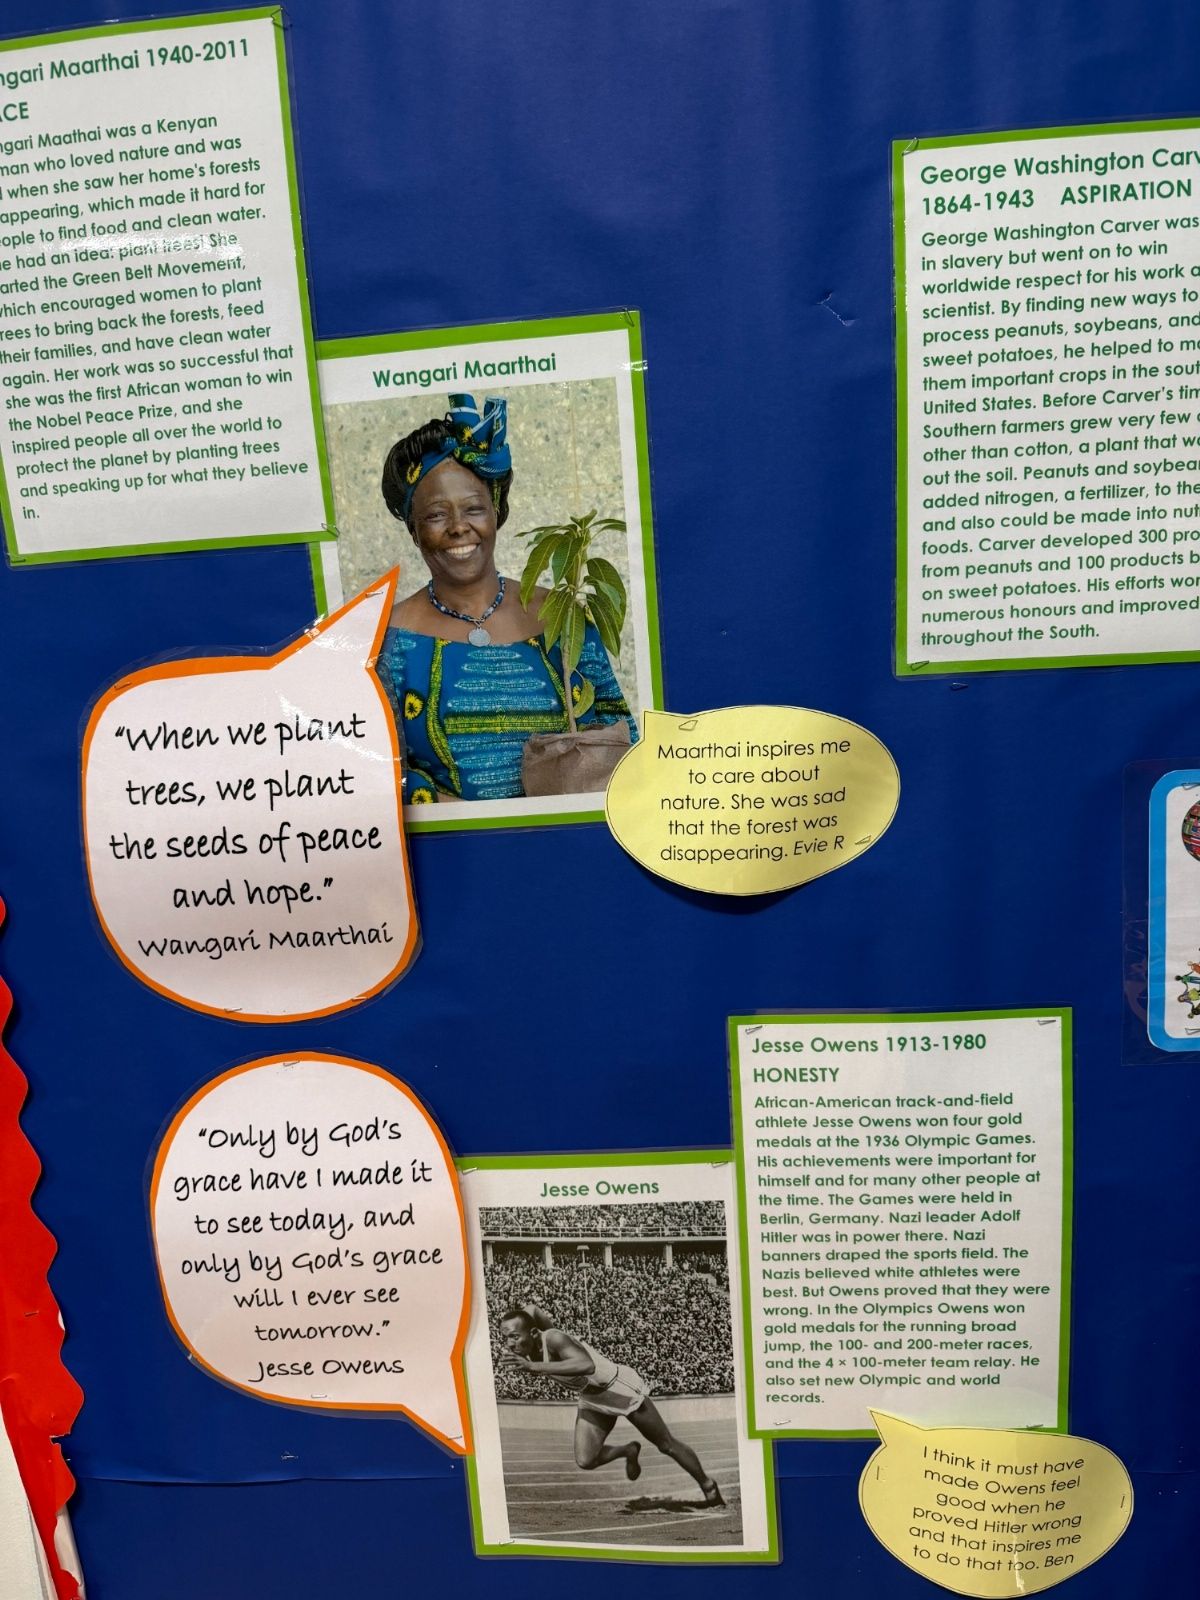 ngari Maarthai 1940-2011
CE
ngari Maathai was a Kenyan
man who loved nature and was
when she saw her home's forests
appearing, which made it hard for
ople to find food and clean water.
e had an idea: plant trees! She
arted the Green Belt Movement,
hich encouraged women to plant
rees to bring back the forests, feed
their families, and have clean water
again. Her work was so successful that
she was the first African woman to win
the Nobel Peace Prize, and she
inspired people all over the world to
protect the planet by planting trees
and speaking up for what they believe
in.
Wangari Maarthai
"When we plant
trees, we plant
the seeds of peace
and hope."
Wangari Maarthai
Maarthai inspires me
to care about
nature. She was sad
that the forest was
disappearing. Evie R
George Washington Carv
1864-1943 ASPIRATION
George Washington Carver was
in slavery but went on to win
worldwide respect for his work a
scientist. By finding new ways to
process peanuts, soybeans, and
sweet potatoes, he helped to ma
them important crops in the sout
United States. Before Carver's tim
Southern farmers grew very few c
other than cotton, a plant that wo
out the soil. Peanuts and soybear
added nitrogen, a fertilizer, to the
and also could be made into nut
foods. Carver developed 300 pro
from peanuts and 100 products b
on sweet potatoes. His efforts wor
numerous honours and improved
throughout the South.
"Only by God's
grace have I made it
to see today, and
only by God's grace
will I ever see
tomorrow."
Jesse Owens
Jesse Owens
Jesse Owens 1913-1980
HONESTY
African-American track-and-field
athlete Jesse Owens won four gold
medals at the 1936 Olympic Games.
His achievements were important for
himself and for many other people at
the time. The Games were held in
Berlin, Germany. Nazi leader Adolf
Hitler was in power there. Nazi
banners draped the sports field. The
Nazis believed white athletes were
best. But Owens proved that they were
wrong. In the Olympics Owens won
gold medals for the running broad
jump, the 100- and 200-meter races,
and the 4 × 100-meter team relay. He
also set new Olympic and world
records.
I think it must have
made Owens feel
good when he
proved Hitler wrong
and that inspires me
to do that too. Ben